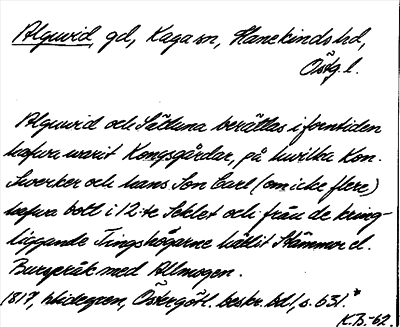 Alguvid, gd, Kaga sn, Hanekinds hd,
Östg. l.
Alguvid och Sätuna berättas i forntiden
hafwa warit Kongsgårdar, på hwilka Kon.
Swerker och hans Son Carl (om icke flere)
hafwa bott i 12-te Seklet och från de kring-
liggande Tingshögarne hållit Stämmor el.
Buryeråk med Allmogen.
1817, Widegren, Östergötl. beskr. bd I, s. 631.*
K.B.-62.